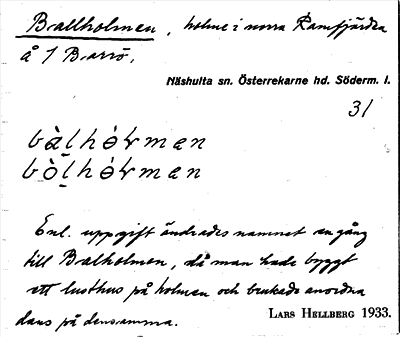 Ballholmen, holme i norra Ramfjärden
å 1 Barrö.
Näshulta sn. Österrekarne hd. Söderm. l.
31
bàlhólman
bòlhólman
Enl. uppgift ändrades namnet en gång
till Balholmen, då man hade byggt
ett lusthus på holmen och brukade anordna
dans på densamma.
LARS HELLBERG 1933.